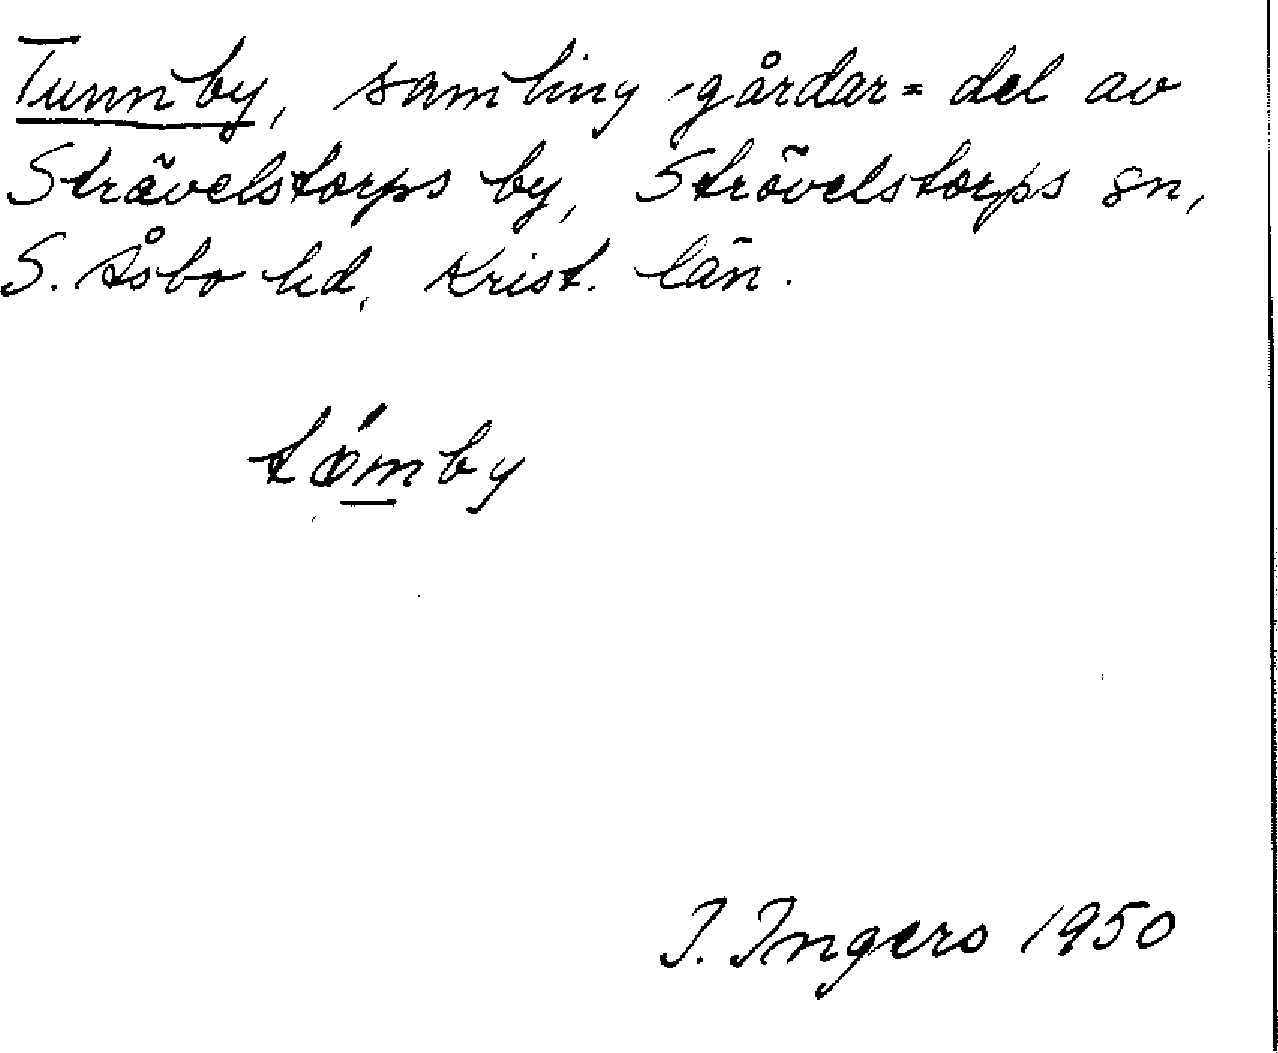 Tunnby, samling gårdar = del av
Strövelstorps by, Strövelstorps sn,
S. Åsbo hd, Krist. län.
tǿmby
I. Ingers 1950